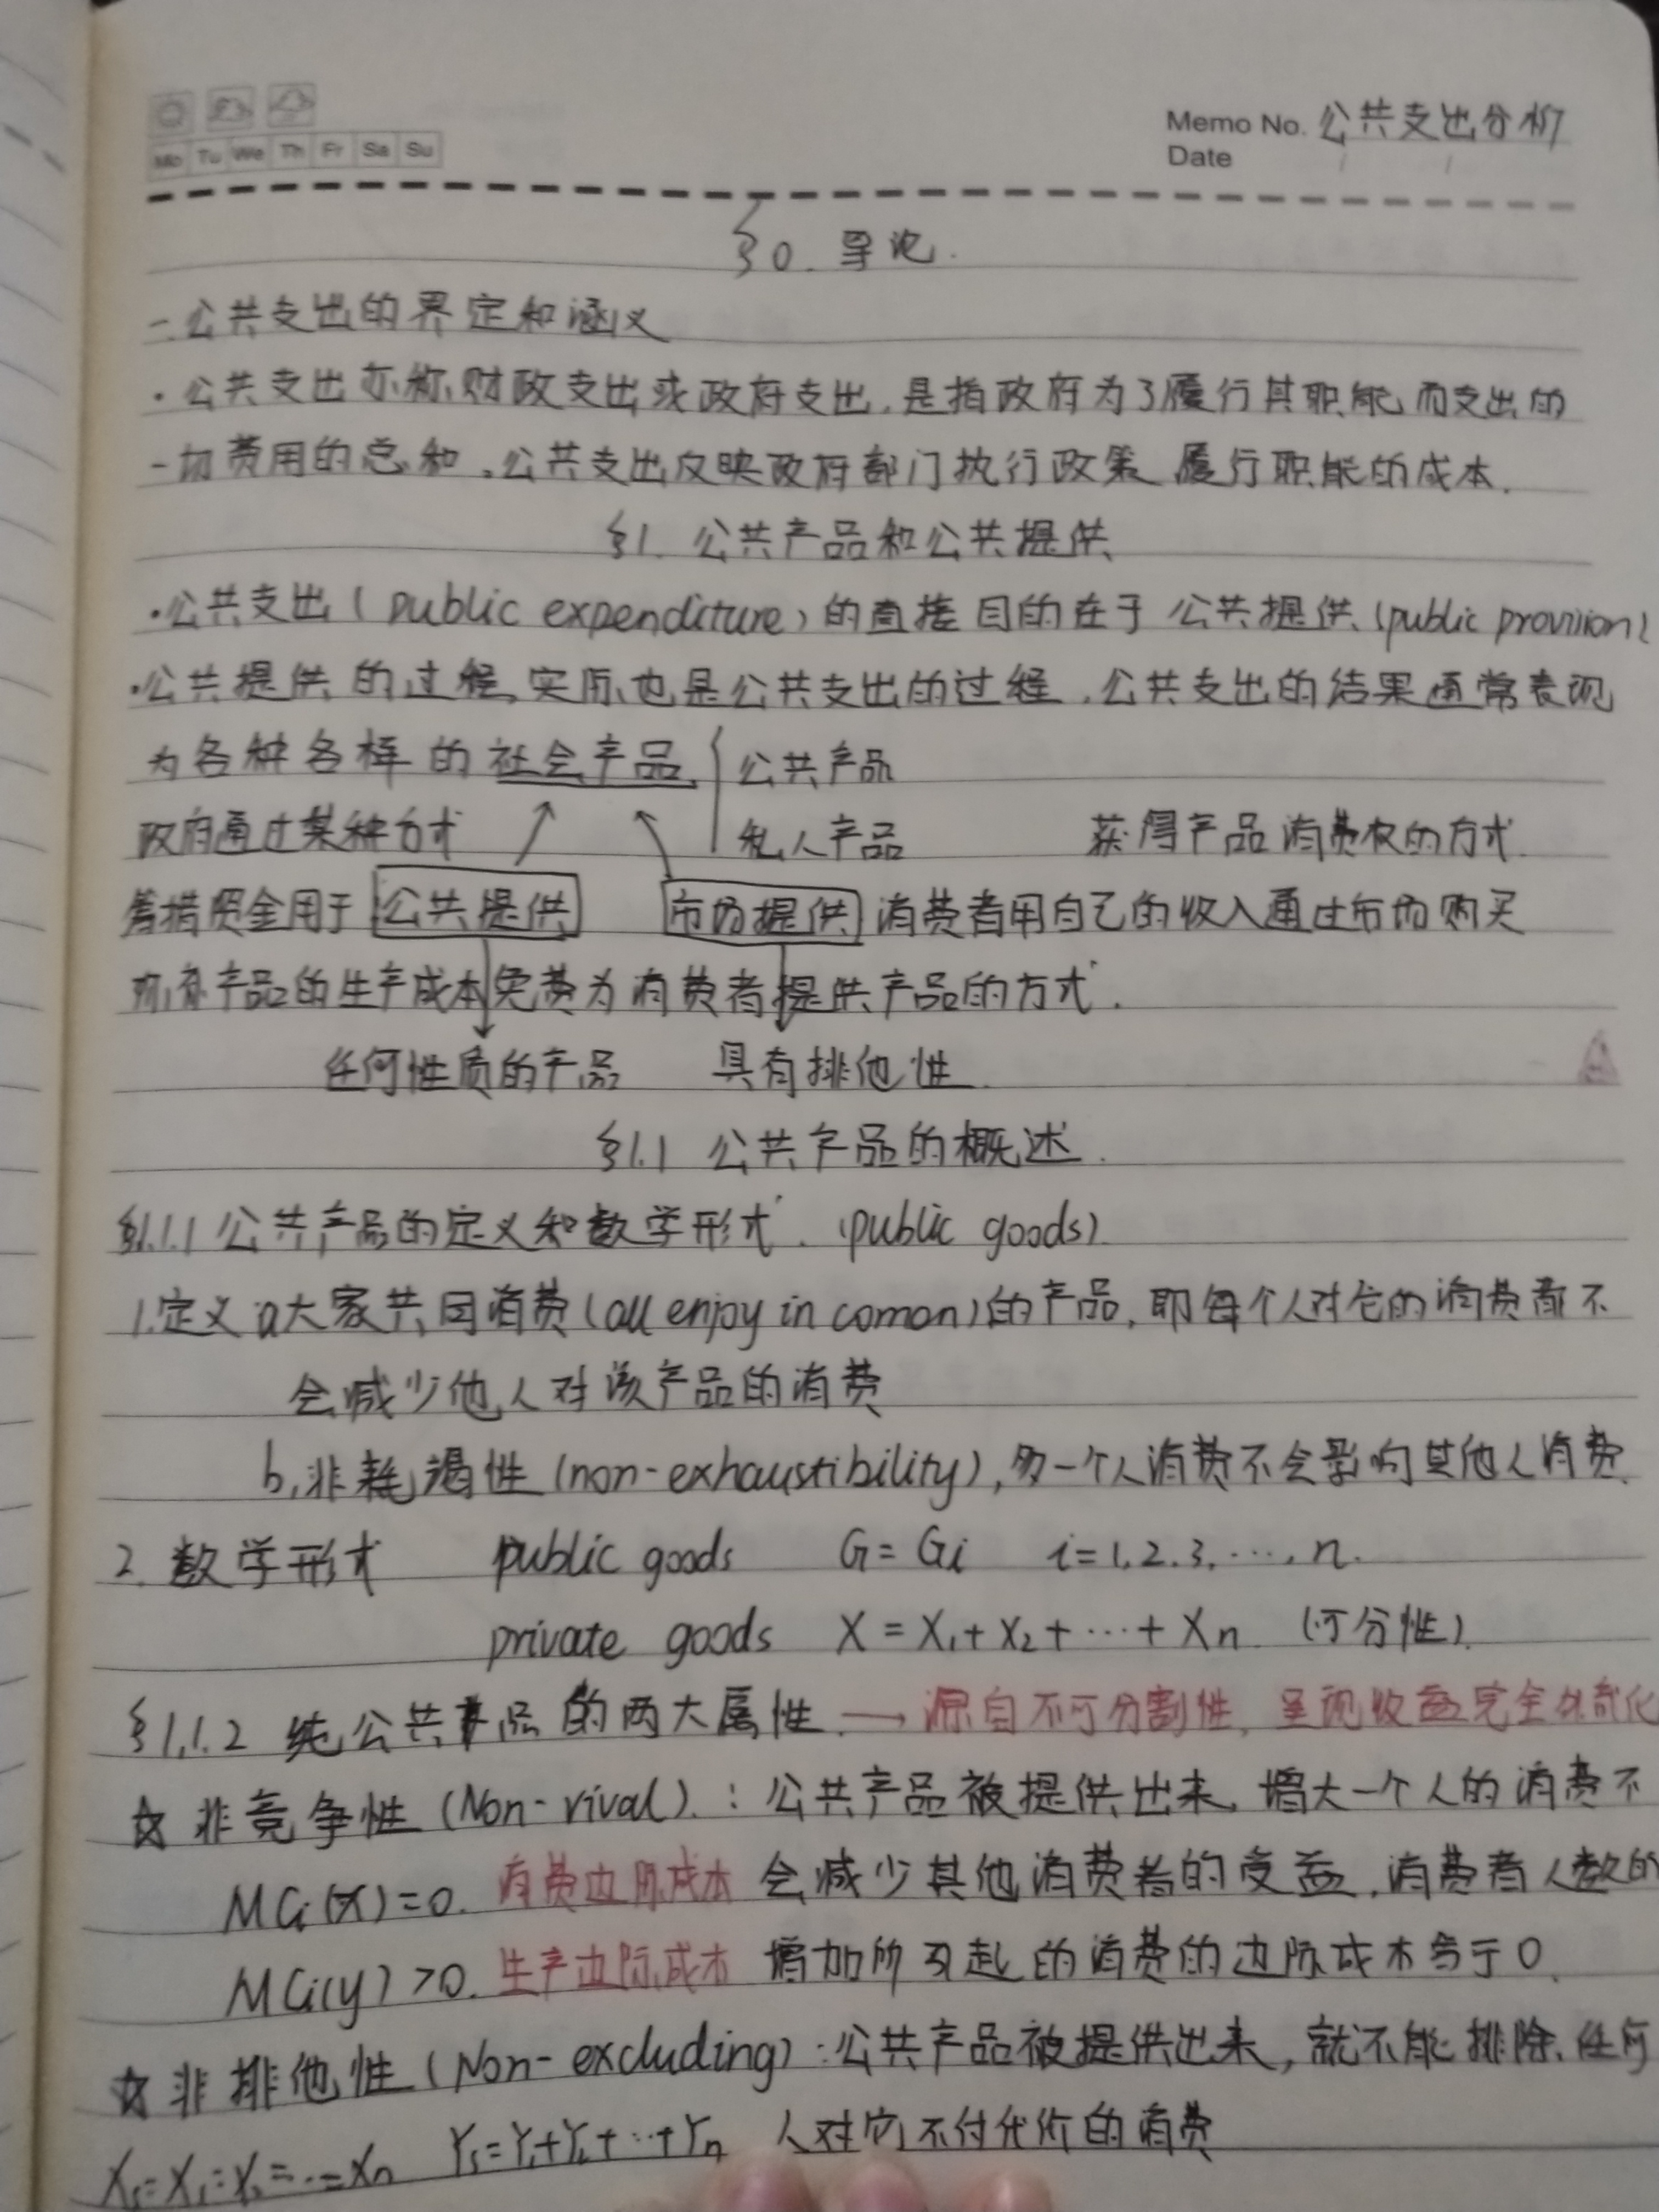 Mo Tu We Th Fr Sa Su
Memo No. 公共支出分析
Date
§0. 导论.
一.公共支出的界定和涵义
·公共支出亦称财政支出或政府支出,是指政府为了履行其职能而支出的
一切费用的总和,公共支出反映政府部门执行政策 履行职能的成本.
§1. 公共产品和公共提供
·公共支出(public expenditure)的直接目的在于 公共提供(public provision)
·公共提供的过程,实际也是公共支出的过程,公共支出的结果通常表现
为各种各样的社会产品 { 公共产品
政府通过某种方式 私人产品 获得产品消费权的方式.
筹措资金用于 公共提供 市场提供 消费者用自己的收入通过市场购买
弥补产品的生产成本免费为消费者提供产品的方式.
任何性质的产品 具有排他性
§1.1 公共产品的概述.
§1.1.1 公共产品的定义和数学形式. (public goods)
1.定义 a大家共同消费(all enjoy in comon)的产品,即每个人对它的消费都不
会减少他人对该产品的消费
b.非耗竭性(non-exhaustibility),多一个人消费不会影响其他人消费.
2. 数学形式 public goods G=Gi i=1.2.3.….n.
private goods X=X₁+X₂+…+Xn (可分性).
§1.1.2 纯公共产品的两大属性. → 源自不可分割性, 呈现收益完全外部化
☆ 非竞争性 (Non-rival). : 公共产品被提供出来, 增大一个人的消费不
MCi(x)=0. 消费边际成本 会减少其他消费者的受益,消费者人数的
MCi(y)>0. 生产边际成本 增加所引起的消费的边际成本等于0.
☆ 非排他性 (Non-excluding) :公共产品被提供出来, 就不能排除任何
人对它不付代价的消费